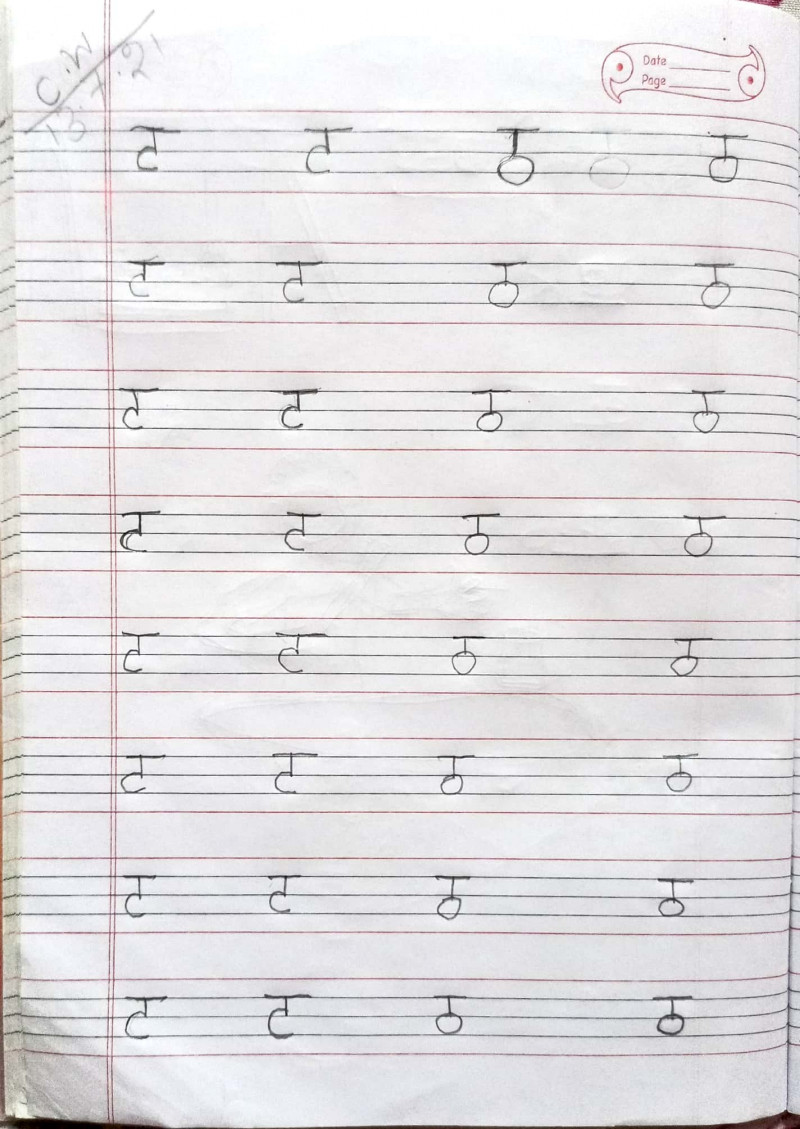 C.W
13.7.21
Date
Page
ट ट ठ ठ
ट ट ठ ठ
ट ट ठ ठ
ट ट ठ ठ
ट ट ठ ठ
ट ट ठ ठ
ट ट ठ ठ
ट ट ठ ठ